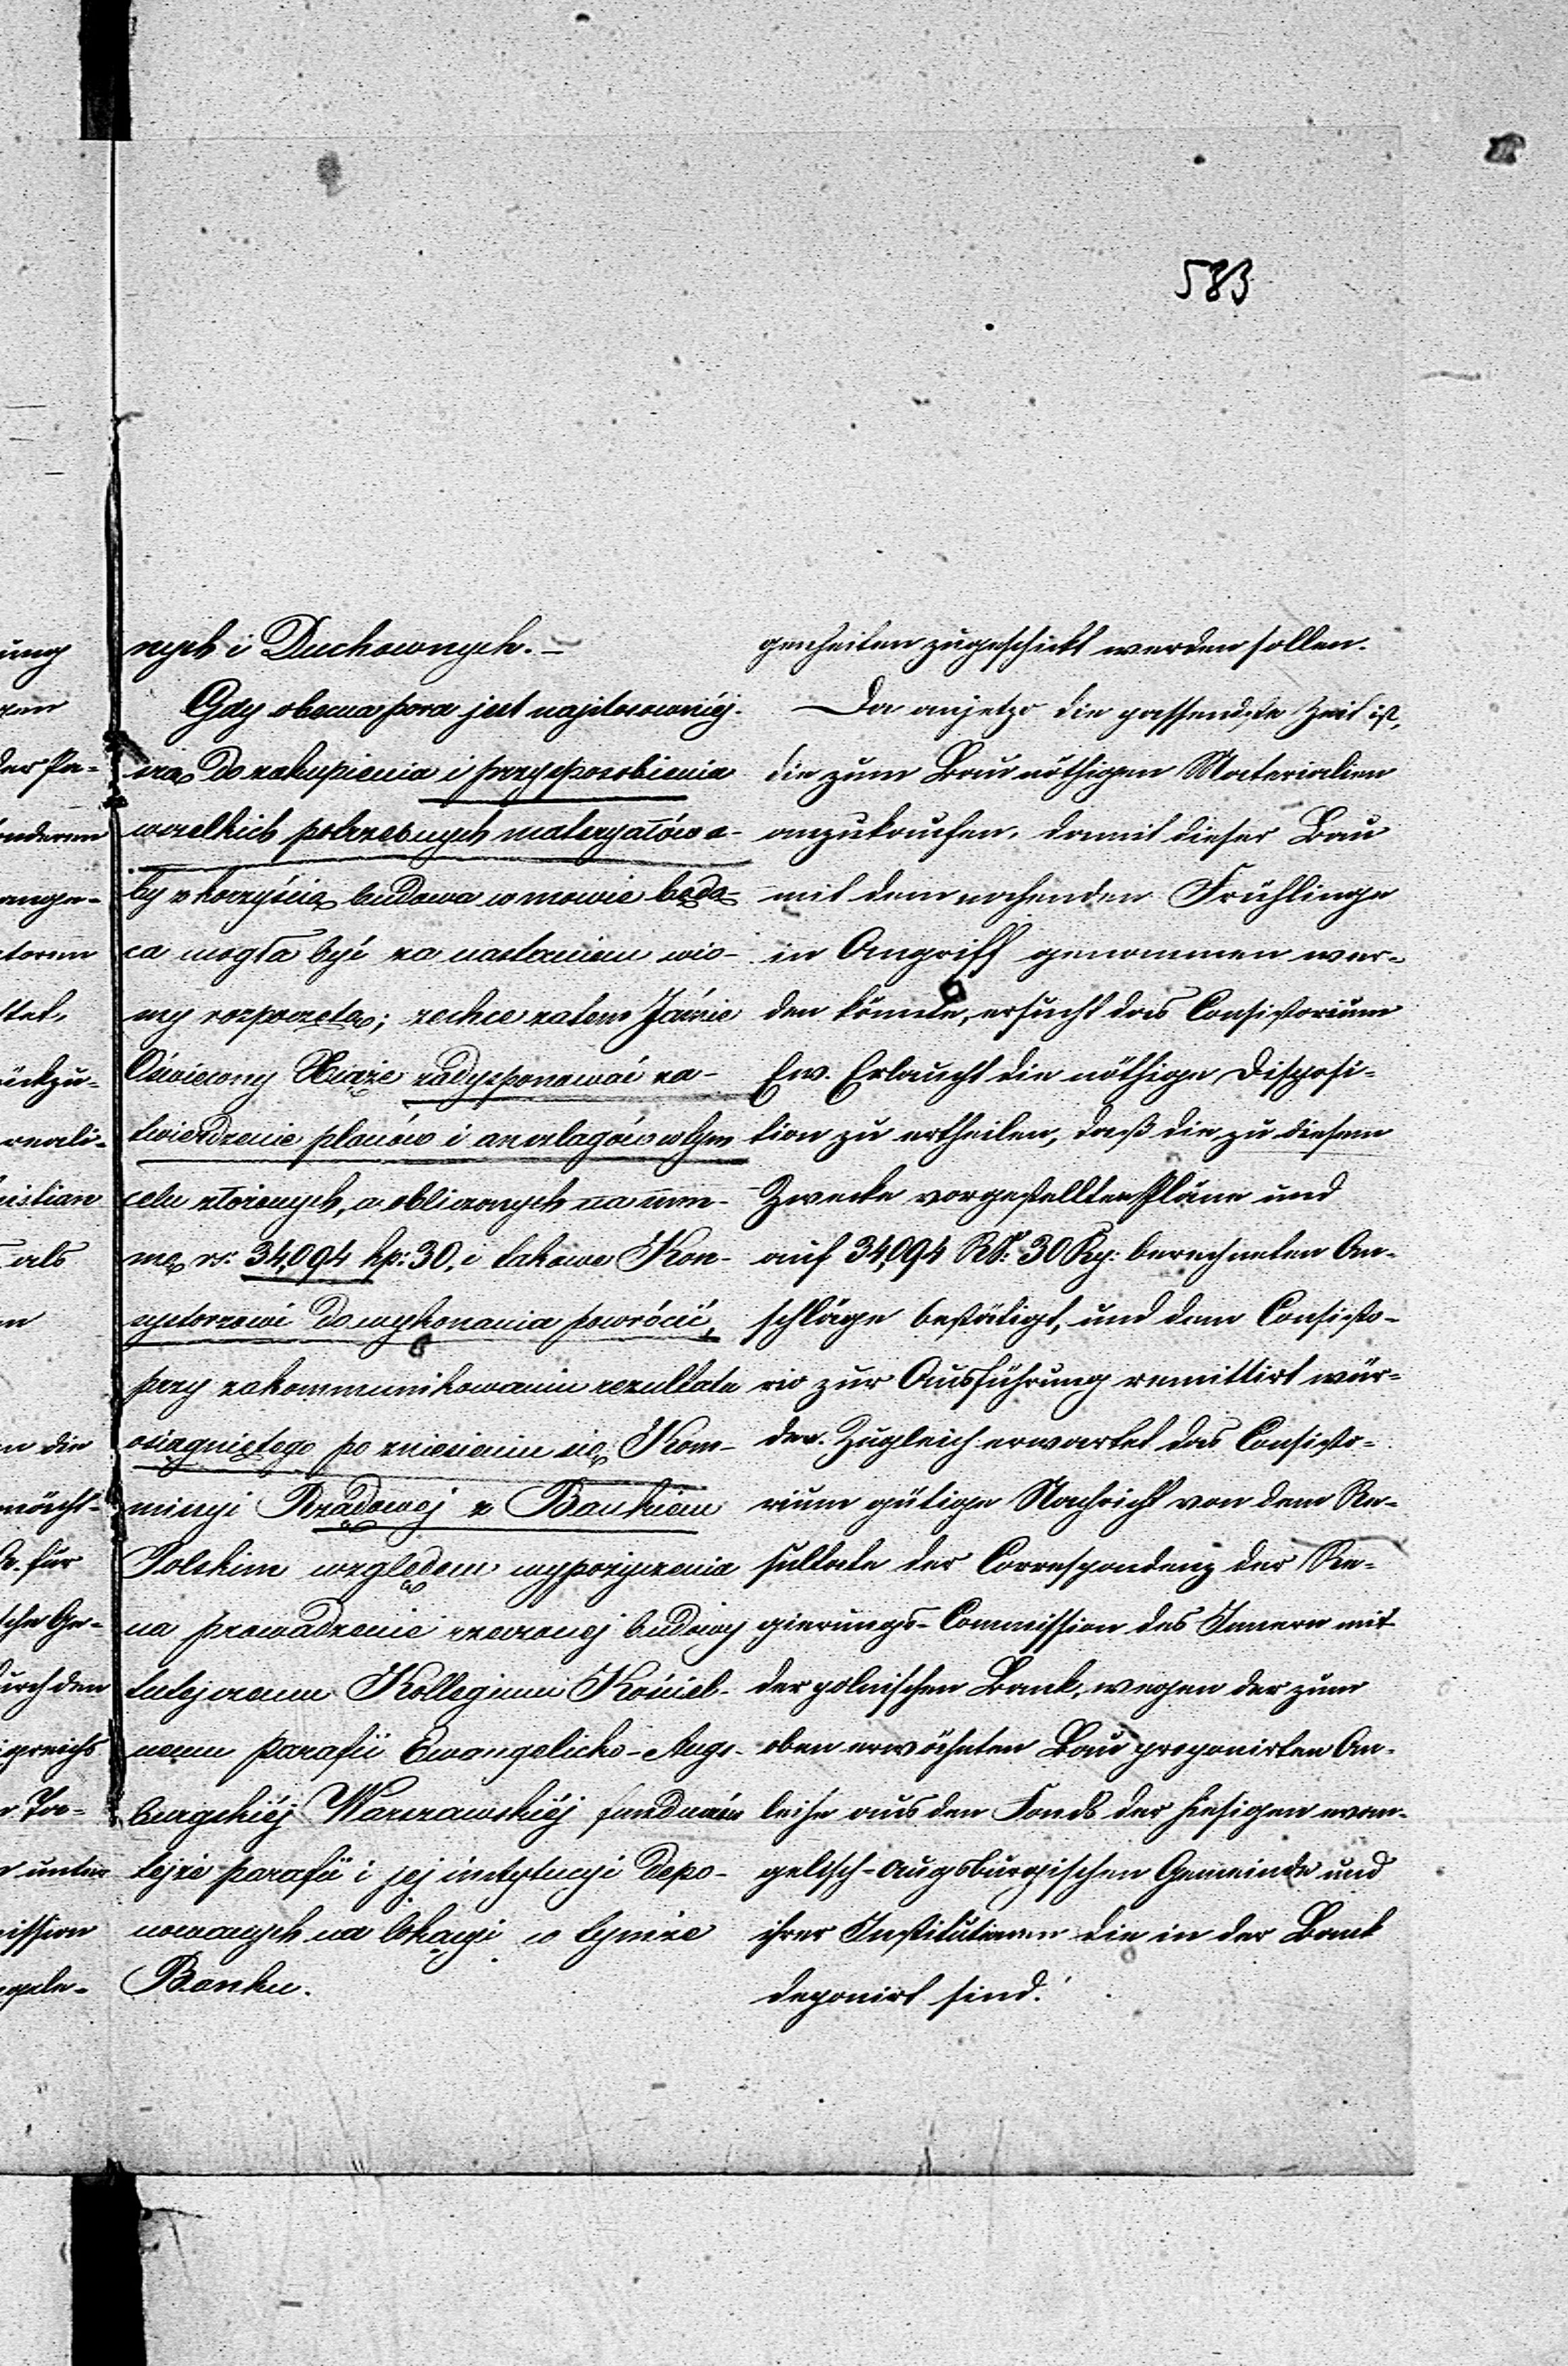 583
nych i Duchownych. –
Gdy obecna pora jest najstosowniéj-
szą do zakupienia i przysposobienia
wszelkich potrzebnych materyałów a-
by z korzyścią budowa w mowie będą-
ca mogła być za nastaniem wio-
sny rozpoczętą; zechce zatem Jaśnie
Oświecony Xiąże zadysponować za-
twierdzenie planów i anszlagów w tym
celu złożonych, a obliczonych na sum-
mę rs: 34,094 kp: 30, i takowe Kon-
systorzowi do wykonania powrócić,
przy zakommunikowaniu rezultatu
osiągniętego po zniesieniu się Kom-
missyi Rządowej z Bankiem
Polskim względem wypożyczenia
na prowadzenie rzeczonej budowy
tutejszemu Kollegium Kościel-
nemu parafii Ewangelicko-Augs-
burgskiéj Warszawskiéj funduszów
tejże parafii i jej instytucyi depo-
nowanych na lokacyi w tymże
Banku.
genheiten zugeschickt werden sollen.
Da anjetzo die passendste Zeit ist,
die zum Bau nöthigen Materialien
anzukaufen, damit dieser Bau
mit dem nahenden Frühlinge
in Angriff genommen wer-
den könnte, ersucht das Consistorium
Ew. Erlaucht die nöthige Disposi-
tion zu ertheilen, daß die zu diesem
Zwecke vorgestellten Pläne und
auf 34,094 RS: 30 Kp: berechneten An-
schläge bestätigt, und dem Consisto-
rio zur Ausführung remittirt wür-
den. Zugleich erwartet das Consisto-
rium gütige Nachricht von dem Re-
sultate der Correspondenz der Re-
gierungs-Commission des Innern mit
der polnischen Bank, wegen der zum
oben erwähnten Bau proponirten An-
leihe aus den Fonds der hiesigen evan-
gelisch-augsburgischen Gemeinde und
ihrer Institutionen die in der Bank
deponirt sind.